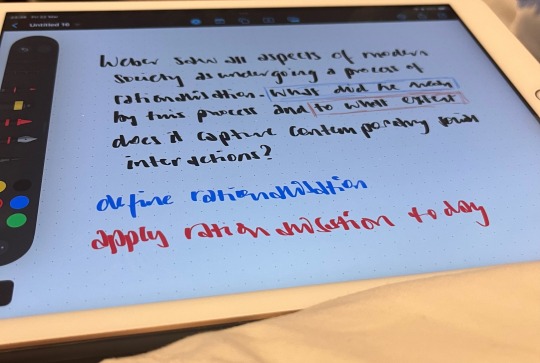 Untitled 10
Weber saw all aspects of modern
society as undergoing a process of
rationalisation. What did he mean
by this process and to what extent
does it capture contemporary social
interactions?
define rationalisation
apply rationalisation today